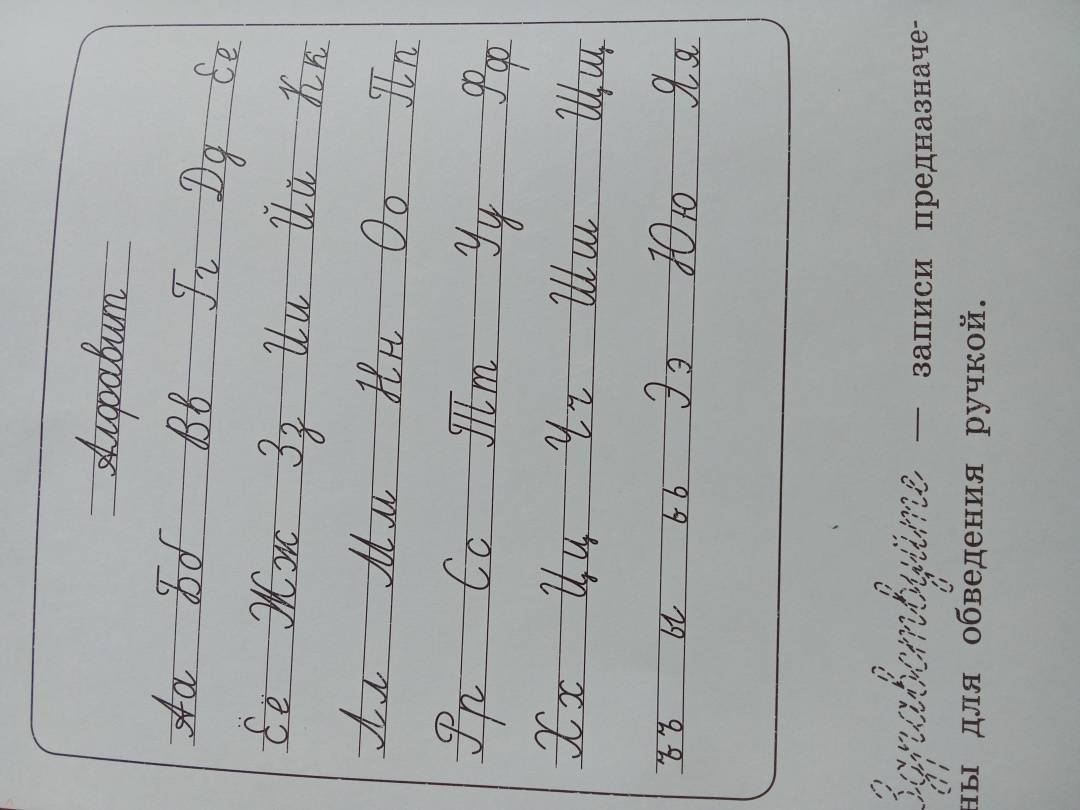 Алфавит
Аа Бб Вв Гг Дд Ее
Ёё Жж Зз Ии Йй Кк
Лл Мм Нн Оо Пп
Рр Сс Тт Уу Фф
Хх Цц Чч Шш Щщ
ъъ ы ьь Ээ Юю Яя
Здравствуйте — записи предназначе-
ны для обведения ручкой.